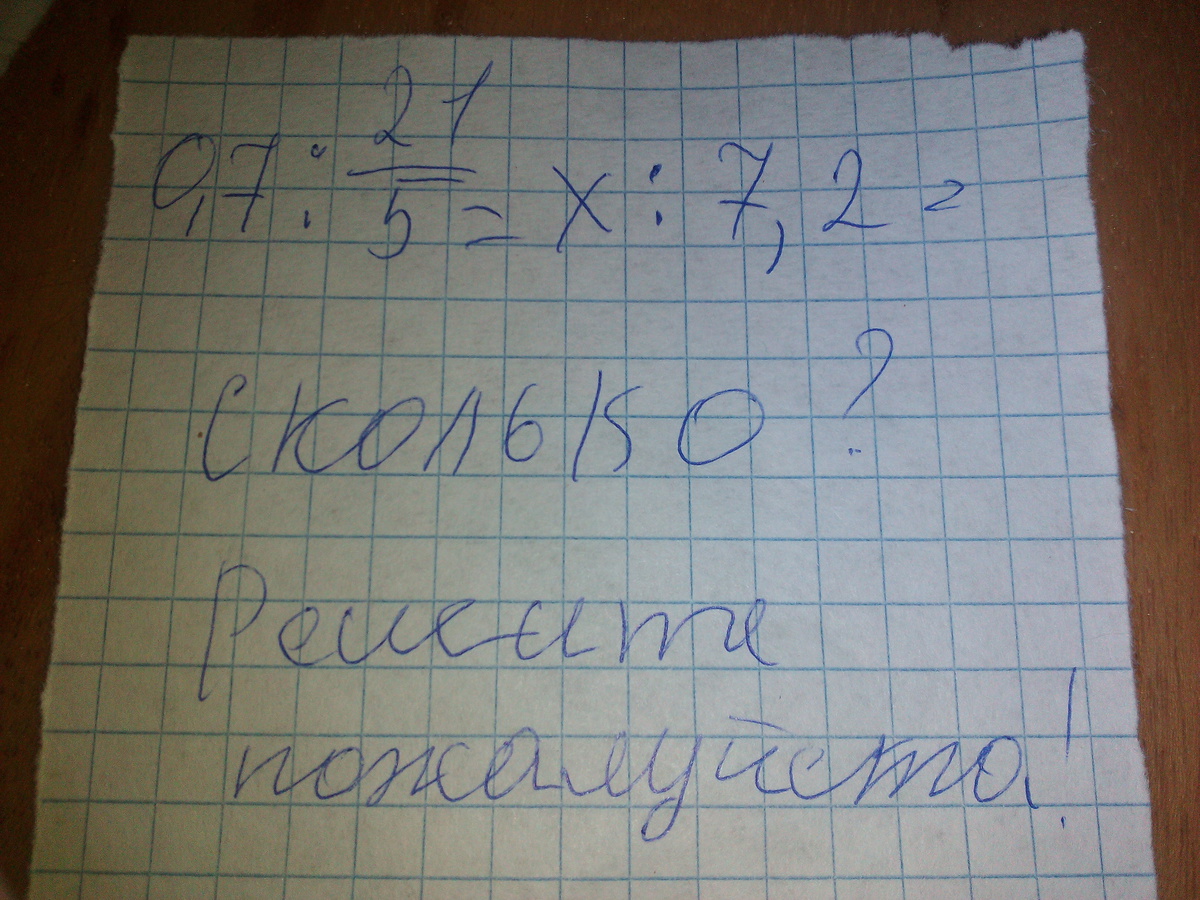 0,7 : 21/5 = x : 7,2 =
сколько?
Решите
пожалуйста!